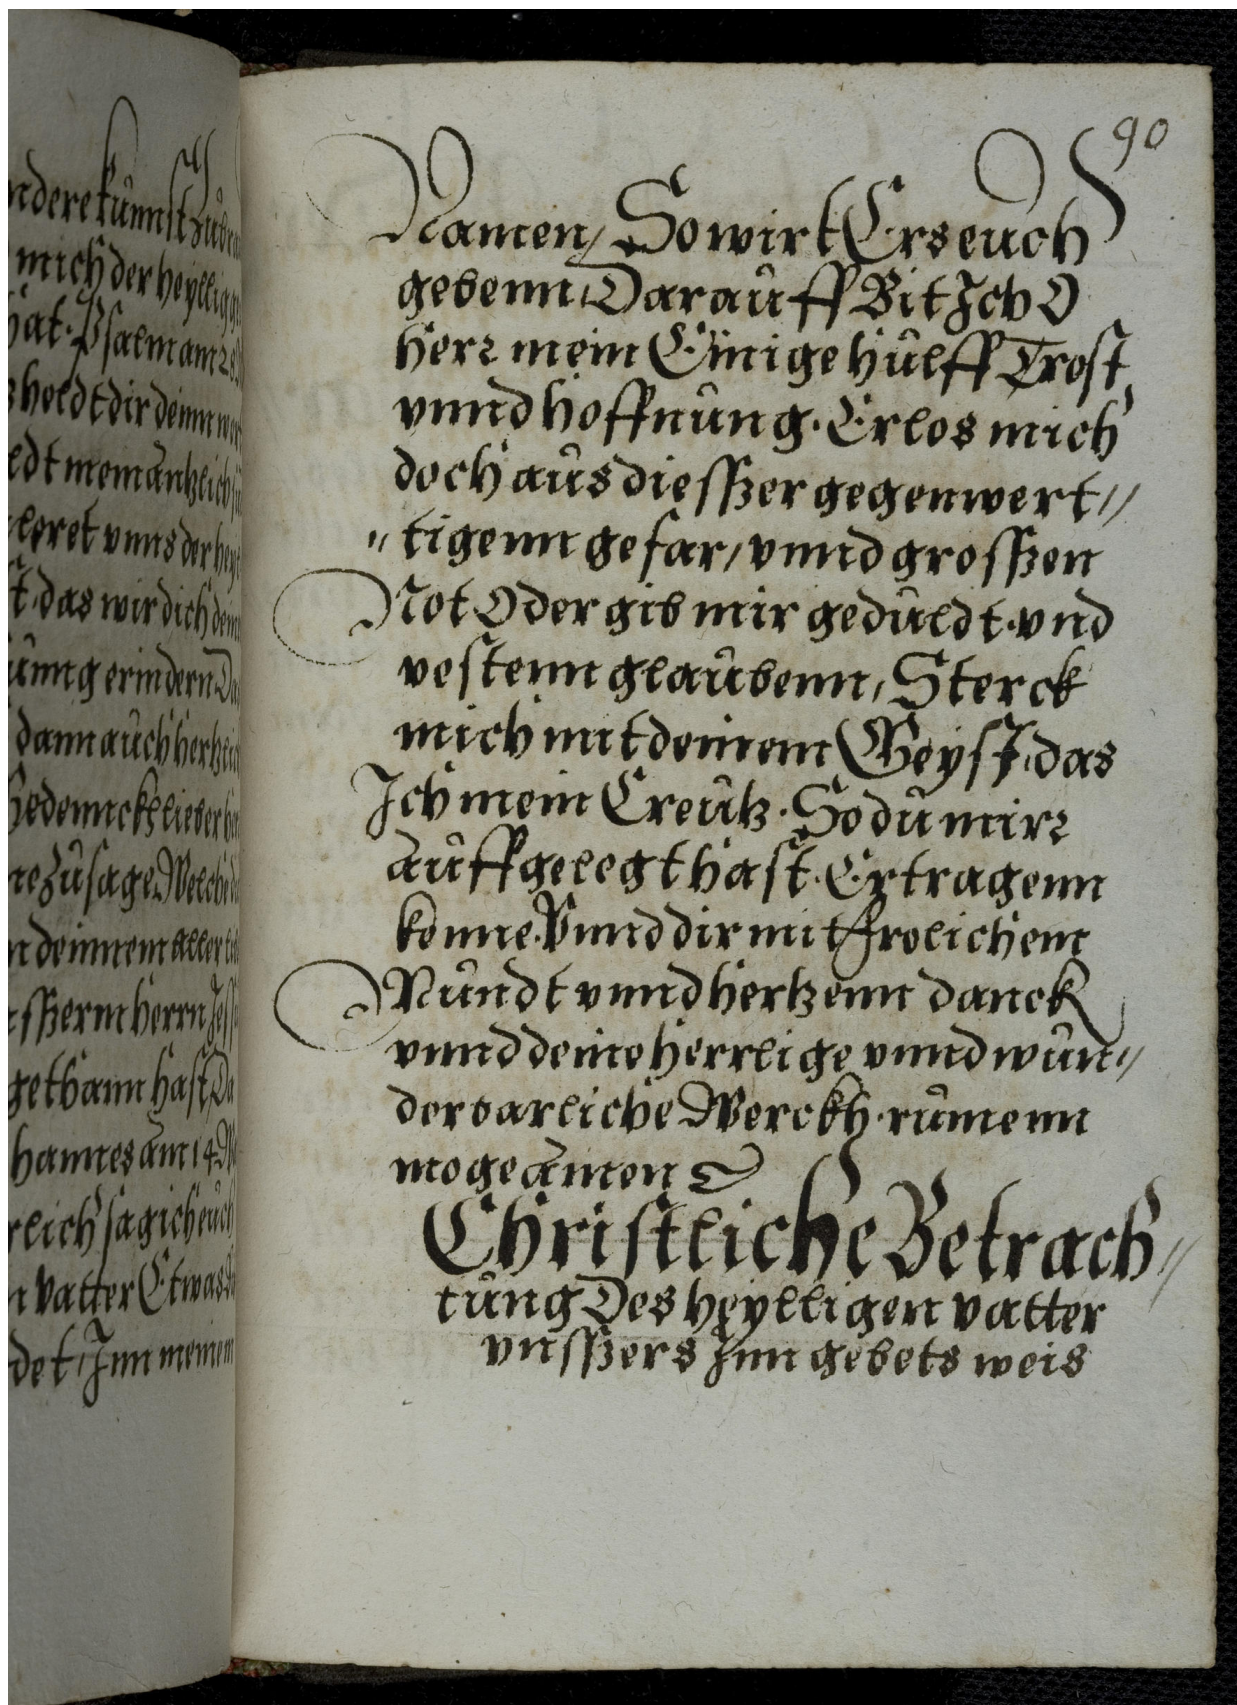 ndere kunnst Zubr
mich der heyllig
hat. Psalm am 28
holdt dir deinn wor
edt mein antzlich
leret vnns der hey
t. das wir dich dem
unng erindern Da
dann auch hertzlich
Gedennckh lieber
ne Zusage. Welche
n deinnem aller
ssßerm herrn Jess
gethann hast Da
hannes am 14
rlich sag ich euch
n vatter Etwas
det, Inn meinem
90
Namen, So wirt Ers euch
gebenn, Darauff Bit Ich O
herr mein Einige hulff Trost,
vnnd hoffnung. Erlos mich
doch aus diesßer gegenwert//
"tigenn gefar, vnnd grosßen
Not Oder gib mir geduldt. vnd
vestenn glaubenn, Sterck
mich mit deinem Geyst, das
Ich mein Creutz. So du mirr
auffgelegt hast. Ertragenn
konne. Vnnd dir mit frolichem
Mundt vnnd hertzenn danck
vnnd deine herrlige vnnd wun//
derbarliche Werckh. rumenn
moge amen
Christliche Betrach//
tung Des heylligen vatter
vnsßers Inn gebets weis